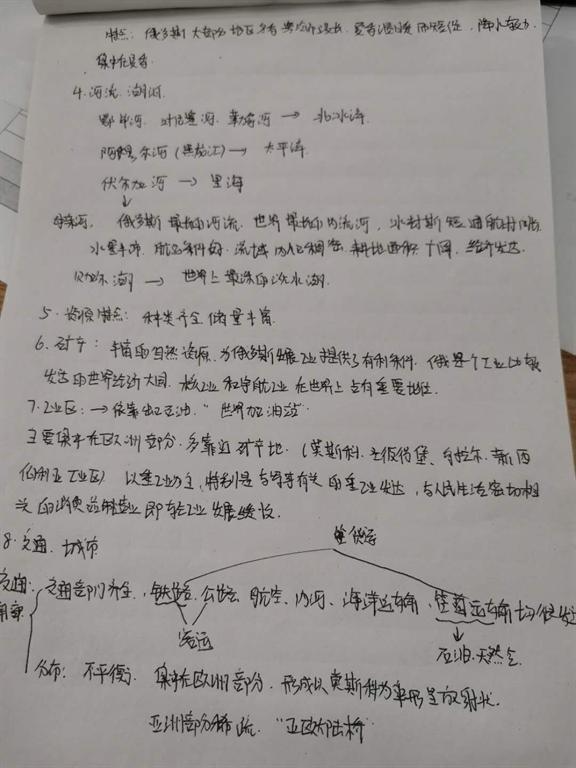 特点：俄罗斯大部分地区冬季寒冷漫长，夏季温暖而短促，降水较少，
集中在夏季。
4.河流、湖泊
鄂毕河、叶尼塞河、勒拿河 → 北冰洋
阿穆尔河（黑龙江）→ 太平洋
伏尔加河 → 里海
母亲河，俄罗斯最长的河流，世界最长的内流河，冰封期短，通航时间长
水量丰沛，航运条件好，流域内人口稠密，耕地面积广阔，经济发达
贝加尔湖 → 世界上最深的淡水湖
5.资源特点：种类齐全，储量丰富
6.矿产：丰富的自然资源，为俄罗斯发展工业提供了有利条件，俄是个工业比较
发达的世界经济大国，核工业和宇航工业在世界上占有重要地位
7.工业区：→ 依靠出口石油，“世界加油站”
主要集中在欧洲部分，多靠近矿产地，（莫斯科、圣彼得堡、乌拉尔、新西
伯利亚工业区）以重工业为主，特别是与军事有关的重工业发达，与人民生活密切相
关的消费品制造业即轻工业发展缓慢
8.交通、城市
货运
交通：交通部门齐全，铁路、公路、航空、内河、海洋运输，管道运输均很发达
客运 石油、天然气
分布：不平衡，集中在欧洲部分，形成以莫斯科为中心呈放射状，
亚洲部分稀疏，“亚欧大陆桥”